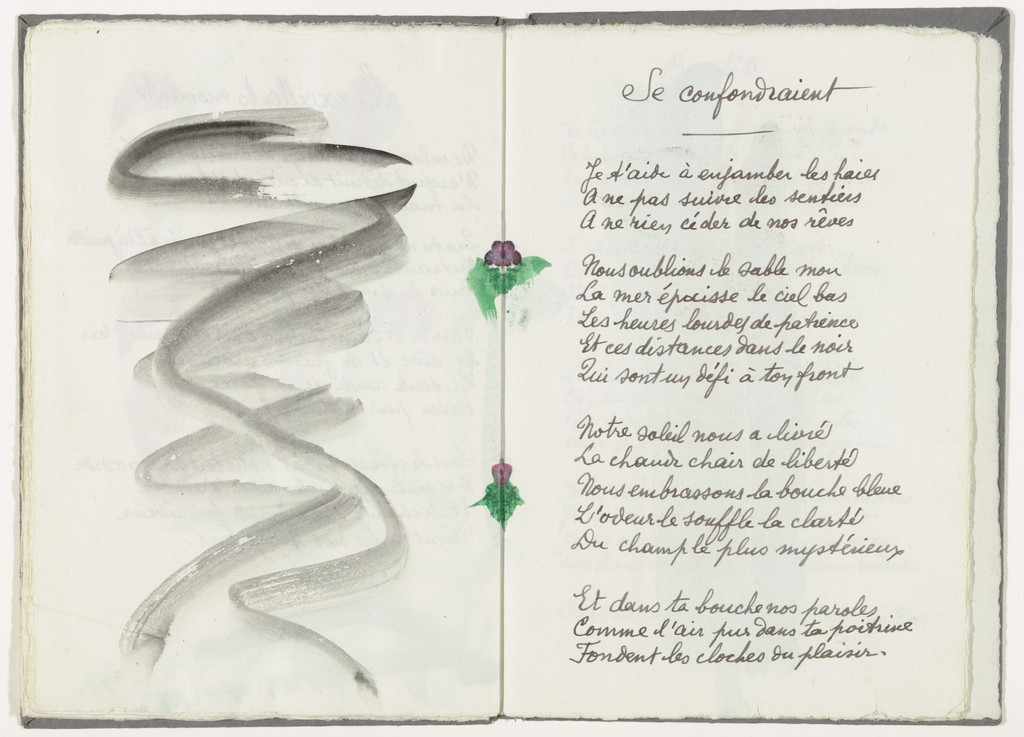 Se confondraient
Je t'aide à enjamber les haies
A ne pas suivre les sentiers
A ne rien céder de nos rêves
Nous oublions le sable mou
La mer épaisse le ciel bas
Les heures lourdes de patience
Et ces distances dans le noir
Qui sont un défi à ton front
Notre soleil nous a livré
La chaude chair de liberté
Nous embrassons la bouche bleue
L'odeur le souffle la clarté
Du champ le plus mystérieux
Et dans ta bouche nos paroles
Comme l'air pur dans ta poitrine
Fondent les cloches du plaisir.